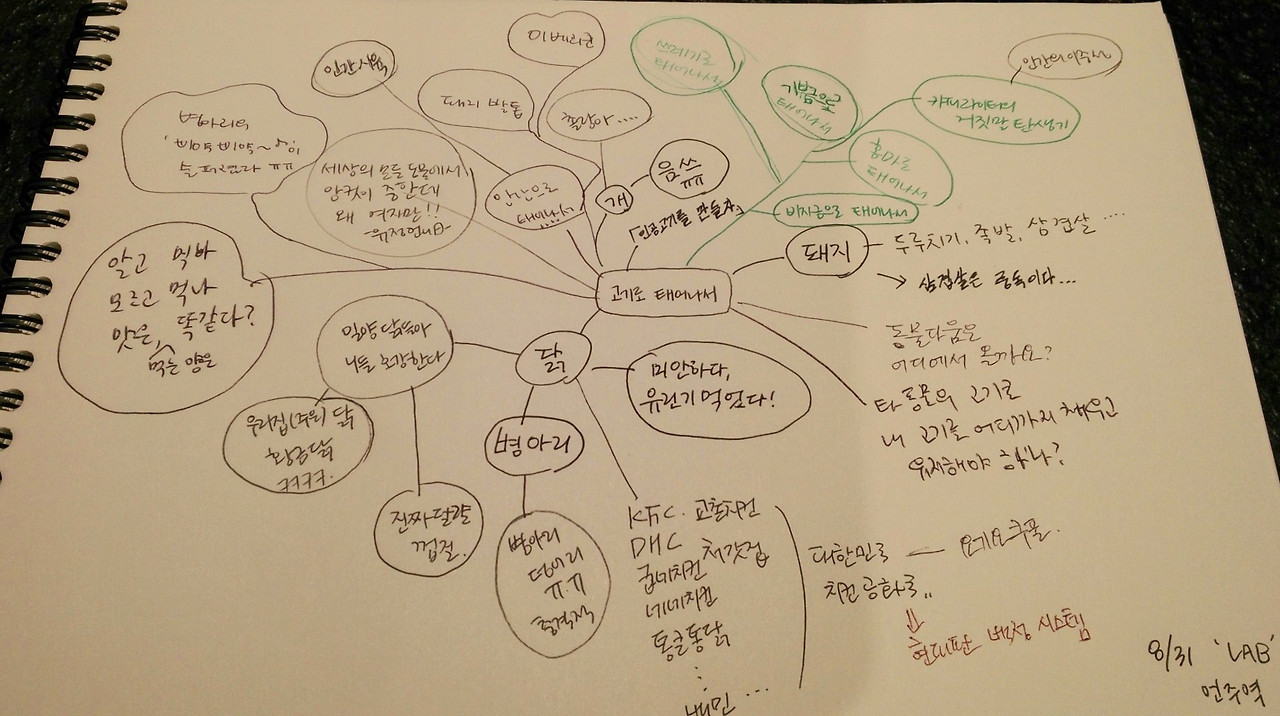 이베리코
인간사육
돼지 발톱
쫄깃아....
쓰레기로
태어나서
거름으로
태어나서
인간의
카피라이터의
거짓말 탄생기
흥미로
태어나서
비자금으로 태어나서
병아리의
'삐약삐약~♪'이
슬퍼
ㅠㅠ
세상의 모든 동물에서
암컷이 중한데
왜 여자만!!
인간으로
태어나서
개
음쓰
ㅠㅠ
「인공고기를 만들자」
돼지
두루치기, 족발, 삼겹살 ....
→ 삼겹살은 중독이다...
고기로 태어나서
알고 먹나
모르고 먹나
맛은, 똑같다?
먹는 양은
동물다움은
어디에서 올까요?
타동물의 고기로
내 고기를 어디까지 채우고
유지해야 하나?
닭
미안하다,
유린기 먹었다!
우리집 닭
황금닭
ㅋㅋㅋ.
병아리
진짜달걀
껍질.
병아리
덩어리
ㅠ.ㅠ
충격적
KFC. 교촌치킨
DHC
굽네치킨 처갓집
네네치킨
통큰통닭
배민 ...
대한민국 — 요기요쿠폰.
치킨공화국..
⇓
현대판 시스템
8/31 'LAB'
언주역